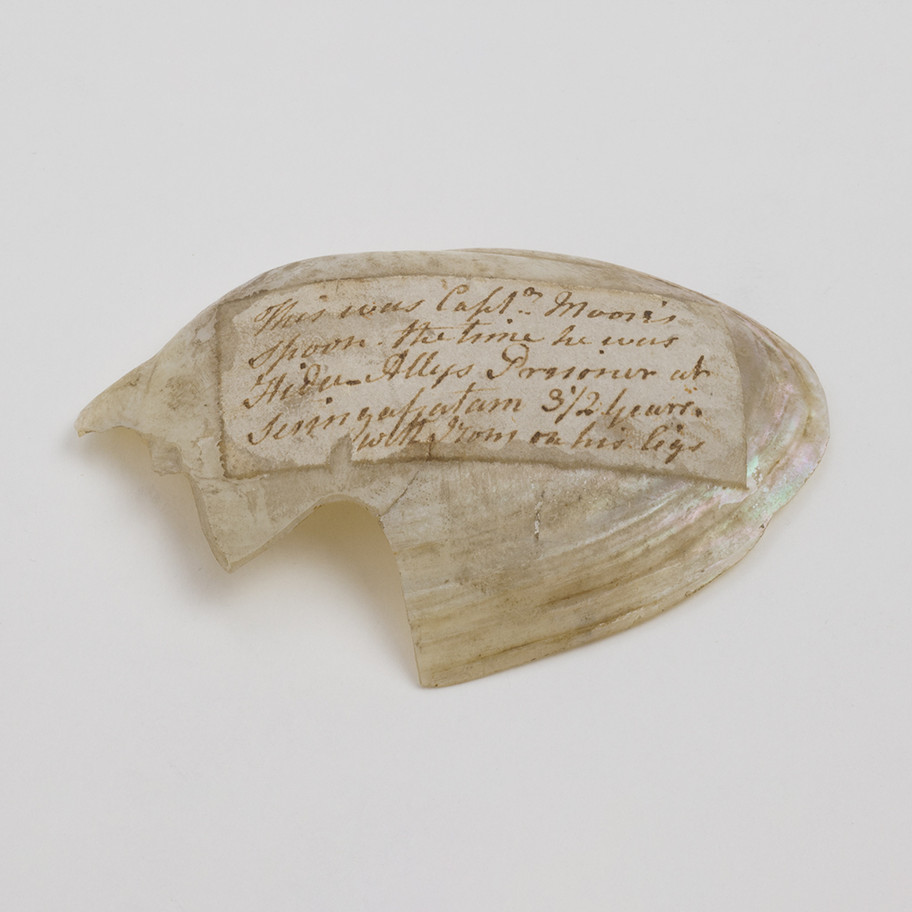 This was Captn Moor's
spoon. the time he was
Hider-Allys Prisoner at
Seringapatam 3 1/2 years.
with Irons on his legs